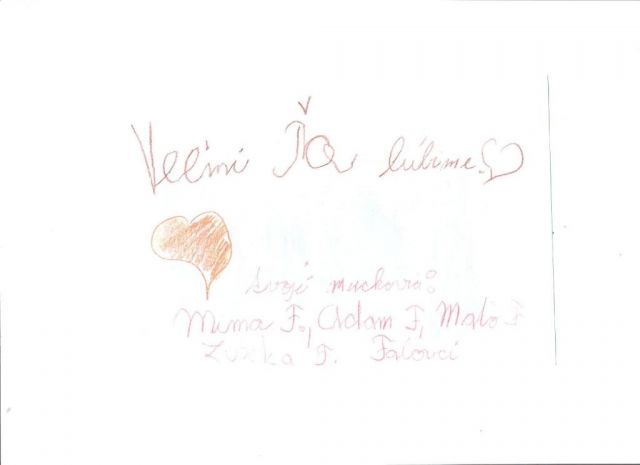 Veľmi Ťa ľúbime.
Tvoji muckovia:
Mima F., Adam F., Maťo F
Zuzka F. Falovci